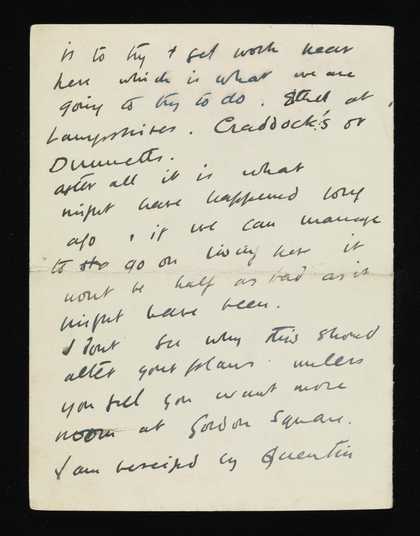 is to try + get work near
here which is what we are
going to try to do. at
Craddock's or
after all it is what
might have happened long
ago, if we can manage
to go on living here it
wont be half as bad as it
might have been.
I dont see why this should
alter your plans unless
you feel you want more
room at Gordon Square.
I am by Quentin